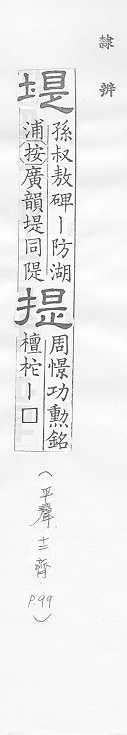 隸辨
堤
孫叔敖碑丨防湖
浦按廣韻堤同隄
提
周憬功勲銘
檀柁丨□
(平聲 十二齊 P.99)